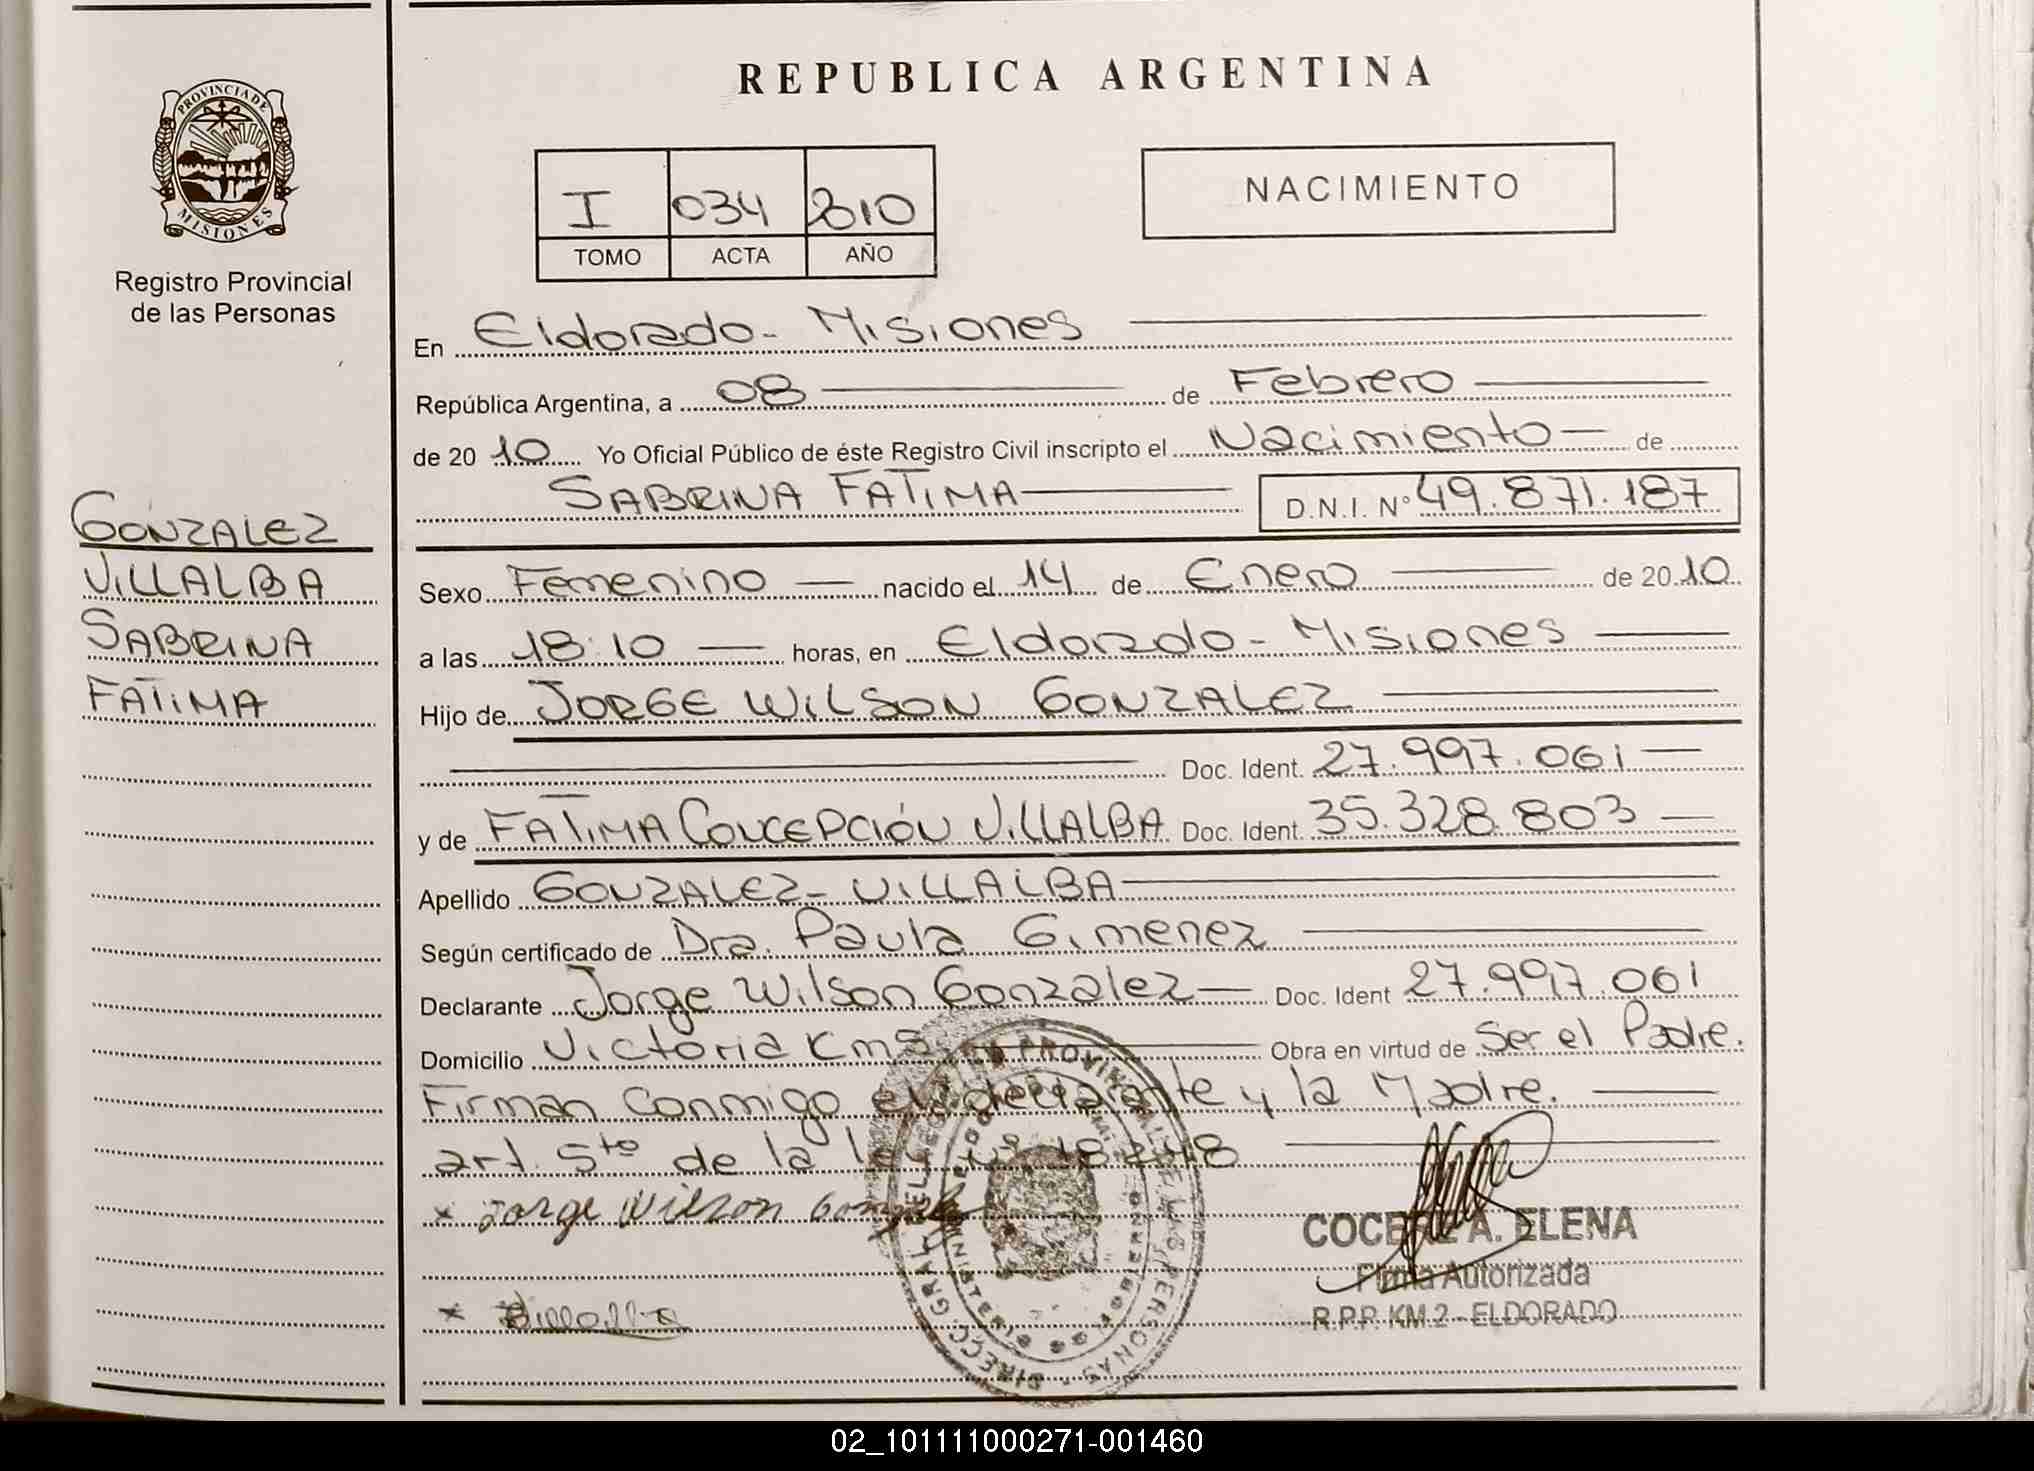 REPUBLICA ARGENTINA
PROVINCIA DE
MISIONES
Registro Provincial
de las Personas
I 034 2010
TOMO ACTA AÑO
NACIMIENTO
GONZALEZ
VILLALBA
SABRINA
FATIMA
En Eldorado - Misiones
República Argentina, a 08 de Febrero
de 20 10 Yo Oficial Público de éste Registro Civil inscripto el Nacimiento de
SABRINA FATIMA D.N.I. N° 49.871.187
Sexo Femenino nacido el 14 de Enero de 20 10
a las 18:10 horas, en Eldorado - Misiones
Hijo de JORGE WILSON GONZALEZ
Doc. Ident. 27.997.061
y de FATIMA CONCEPCIÓN VILLALBA Doc. Ident. 35.328.803
Apellido GONZALEZ - VILLALBA
Según certificado de Dra. Paula Gimenez
Declarante Jorge Wilson Gonzalez Doc. Ident 27.997.061
Domicilio Victoria Km Obra en virtud de Ser el Padre.
Firman conmigo el declarante y la Madre.
art. 5to de la 18248
x Jorge Wilson
x Villalba
COCERE A. ELENA
Firma Autorizada
R.P.P. KM.2 - ELDORADO
02_101111000271-001460